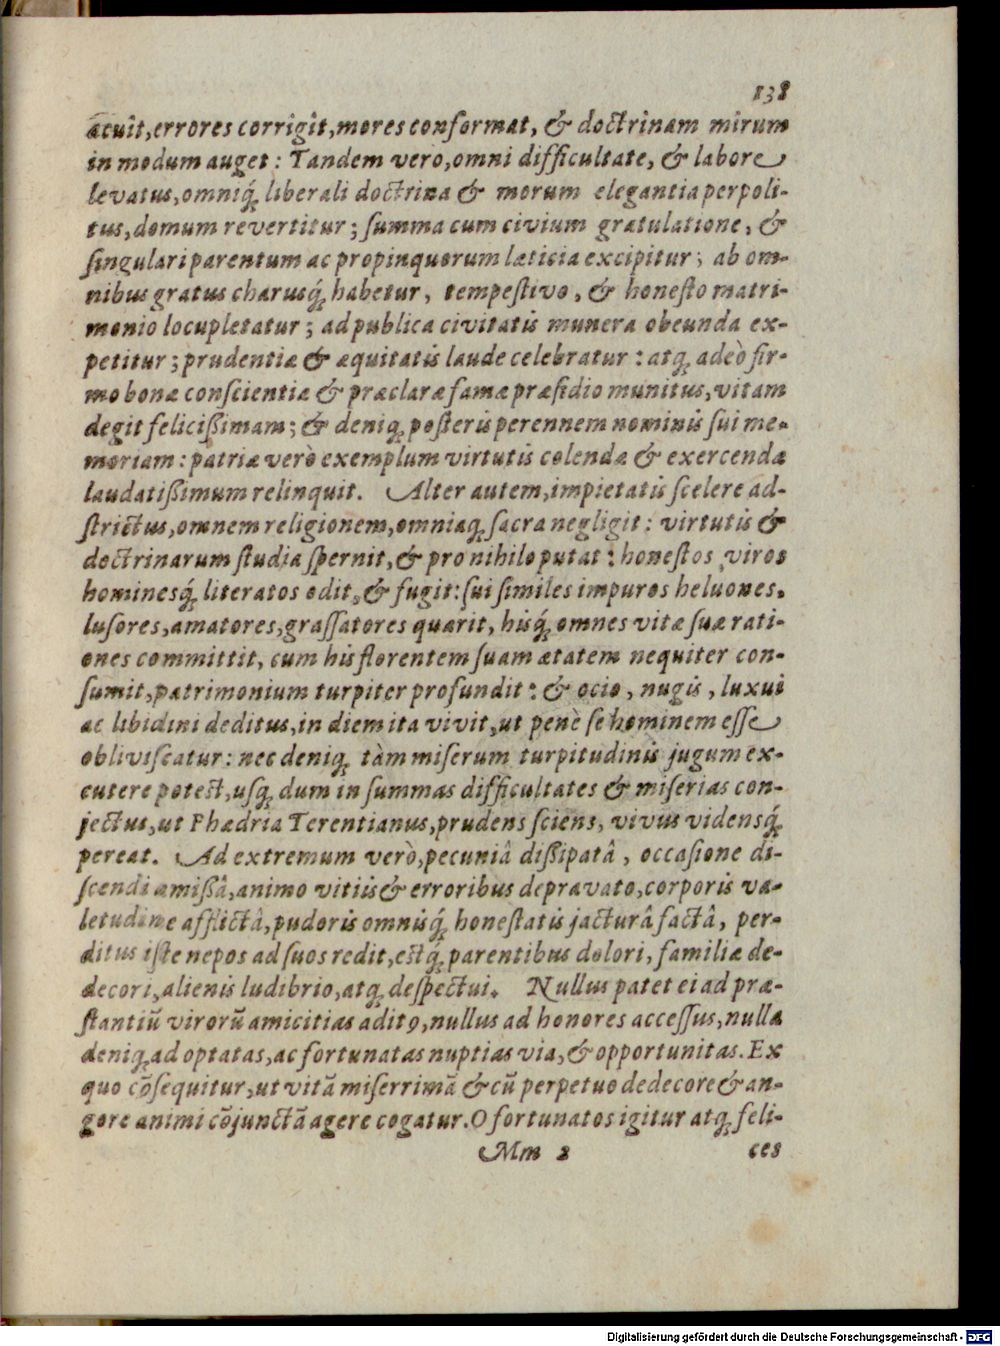 138
acuit, errores corrigit, mores conformat, & doctrinam mirum
in modum auget: Tandem vero, omni difficultate, & labore
levatus, omniq́; liberali doctrina & morum elegantia perpoli-
tus, domum revertitur; ſumma cum civium gratulatione, &
ſingulari parentum ac propinquorum lætitia excipitur; ab om-
nibus gratus charusq́; habetur, tempeſtivo, & honeſto matri-
monio locupletatur; ad publica civitatis munera obeunda ex-
petitur; prudentiæ & æquitatis laude celebratur: atq; adeò fir-
mo bonæ conſcientiæ & præclaræ famæ præſidio munitus, vitam
degit feliciſſimam; & deniq; poſteris perennem nominis ſui me-
moriam: patriæ verò exemplum virtutis colendæ & exercendæ
laudatiſſimum relinquit. Alter autem, impietatis ſcelere ad-
ſtrictus, omnem religionem, omniaq; ſacra negligit: virtutis &
doctrinarum ſtudia ſpernit, & pro nihilo putat: honeſtos viros
hominesq́; literatos odit, & fugit: ſui ſimiles impuros heluones,
luſores, amatores, graſſatores quærit, hisq́; omnes vitæ ſuæ rati-
ones committit, cum his florentem ſuam ætatem nequiter con-
ſumit, patrimonium turpiter profundit: & ocio, nugis, luxui
ac libidini deditus, in diem ita vivit, ut penè ſe hominem eſſe
obliviſcatur: nec deniq; tàm miſerum turpitudinis jugum ex-
cutere poteſt, uſq; dum in ſummas difficultates & miſerias con-
jectus, ut Phædria Terentianus, prudens ſciens, vivus vidensq́;
pereat. Ad extremum verò, pecuniâ diſſipatâ, occaſione di-
ſcendi amiſſâ, animo vitiis & erroribus depravato, corporis va-
letudine afflictâ, pudoris omnisq́; honeſtatis jacturâ factâ, per-
ditus iſte nepos ad ſuos redit, eſtq́; parentibus dolori, familiæ de-
decori, alienis ludibrio, atq; deſpectui. Nullus patet ei ad præ-
ſtantiũ virorũ amicitias aditꝰ, nullus ad honores acceſſus, nulla
deniq; ad optatas, ac fortunatas nuptias via, & opportunitas. Ex
quo cõſequitur, ut vitã miſerrimã & cũ perpetuo dedecore & an-
gore animi cõjunctã agere cogatur. O fortunatos igitur atq; feli-
Mm 2 ces
Digitalisierung gefördert durch die Deutsche Forschungsgemeinschaft - DFG